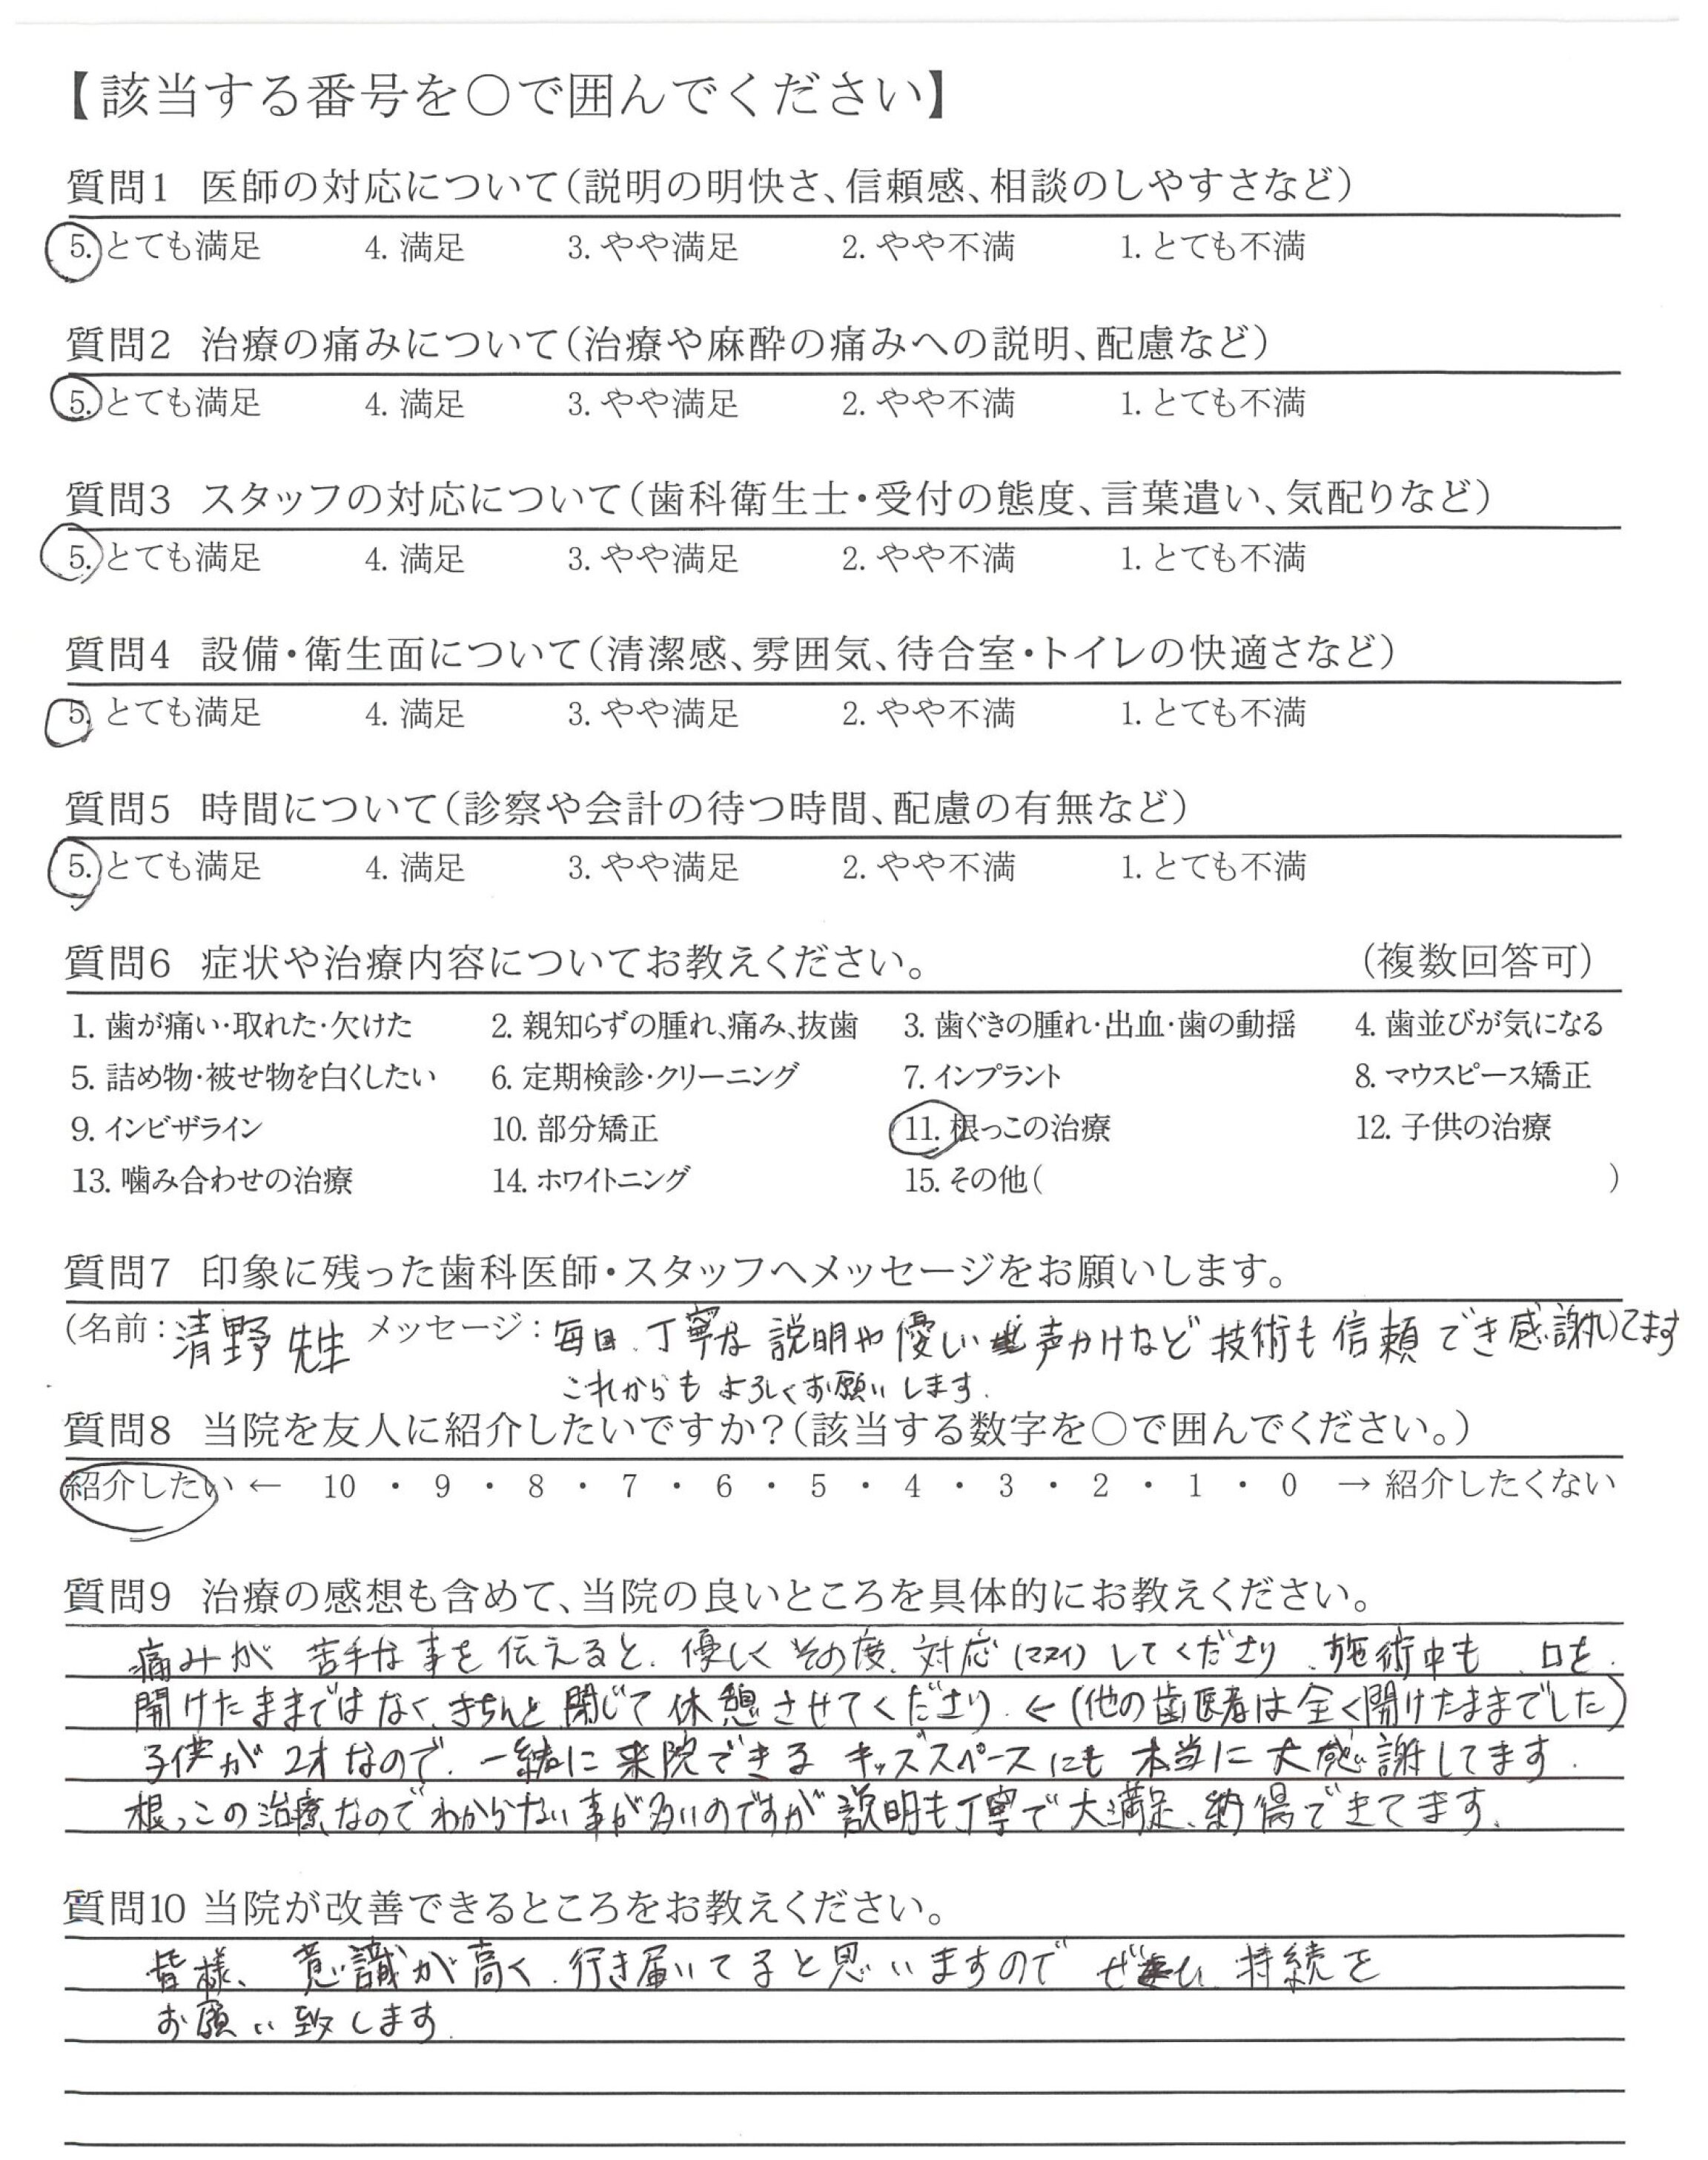 【該当する番号を○で囲んでください】
質問1 医師の対応について(説明の明快さ、信頼感、相談のしやすさなど)
5. とても満足 4. 満足 3. やや満足 2. やや不満 1. とても不満
質問2 治療の痛みについて(治療や麻酔の痛みへの説明、配慮など)
5. とても満足 4. 満足 3. やや満足 2. やや不満 1. とても不満
質問3 スタッフの対応について(歯科衛生士・受付の態度、言葉遣い、気配りなど)
5. とても満足 4. 満足 3. やや満足 2. やや不満 1. とても不満
質問4 設備・衛生面について(清潔感、雰囲気、待合室・トイレの快適さなど)
5. とても満足 4. 満足 3. やや満足 2. やや不満 1. とても不満
質問5 時間について(診察や会計の待つ時間、配慮の有無など)
5. とても満足 4. 満足 3. やや満足 2. やや不満 1. とても不満
質問6 症状や治療内容についてお教えください。 (複数回答可)
1. 歯が痛い・取れた・欠けた 2. 親知らずの腫れ、痛み、抜歯 3. 歯ぐきの腫れ・出血・歯の動揺 4. 歯並びが気になる
5. 詰め物・被せ物を白くしたい 6. 定期検診・クリーニング 7. インプラント 8. マウスピース矯正
9. インビザライン 10. 部分矯正 11. 根っこの治療 12. 子供の治療
13. 噛み合わせの治療 14. ホワイトニング 15. その他( )
質問7 印象に残った歯科医師・スタッフへメッセージをお願いします。
(名前:清野先生 メッセージ:毎回、丁寧な説明や優しい声かけなど技術も信頼でき感謝してます
これからもよろしくお願いします.
質問8 当院を友人に紹介したいですか?(該当する数字を○で囲んでください。)
紹介したい ← 10 ・ 9 ・ 8 ・ 7 ・ 6 ・ 5 ・ 4 ・ 3 ・ 2 ・ 1 ・ 0 → 紹介したくない
質問9 治療の感想も含めて、当院の良いところを具体的にお教えください。
痛みが苦手な事を伝えると、優しくその度、対応(マスイ)してくださり、施術中も、口を
開けたままではなく、きちんと閉じて休憩させてくださり、←(他の歯医者は全く開けたままでした)
子供が2才なので、一緒に来院できるキッズスペースにも本当に大感謝してます.
根っこの治療なのでわからない事が多いのですが説明も丁寧で大満足、納得できてます、
質問10 当院が改善できるところをお教えください。
皆様、意識が高く、行き届いてると思いますのでぜひ、持続を
お願い致します.